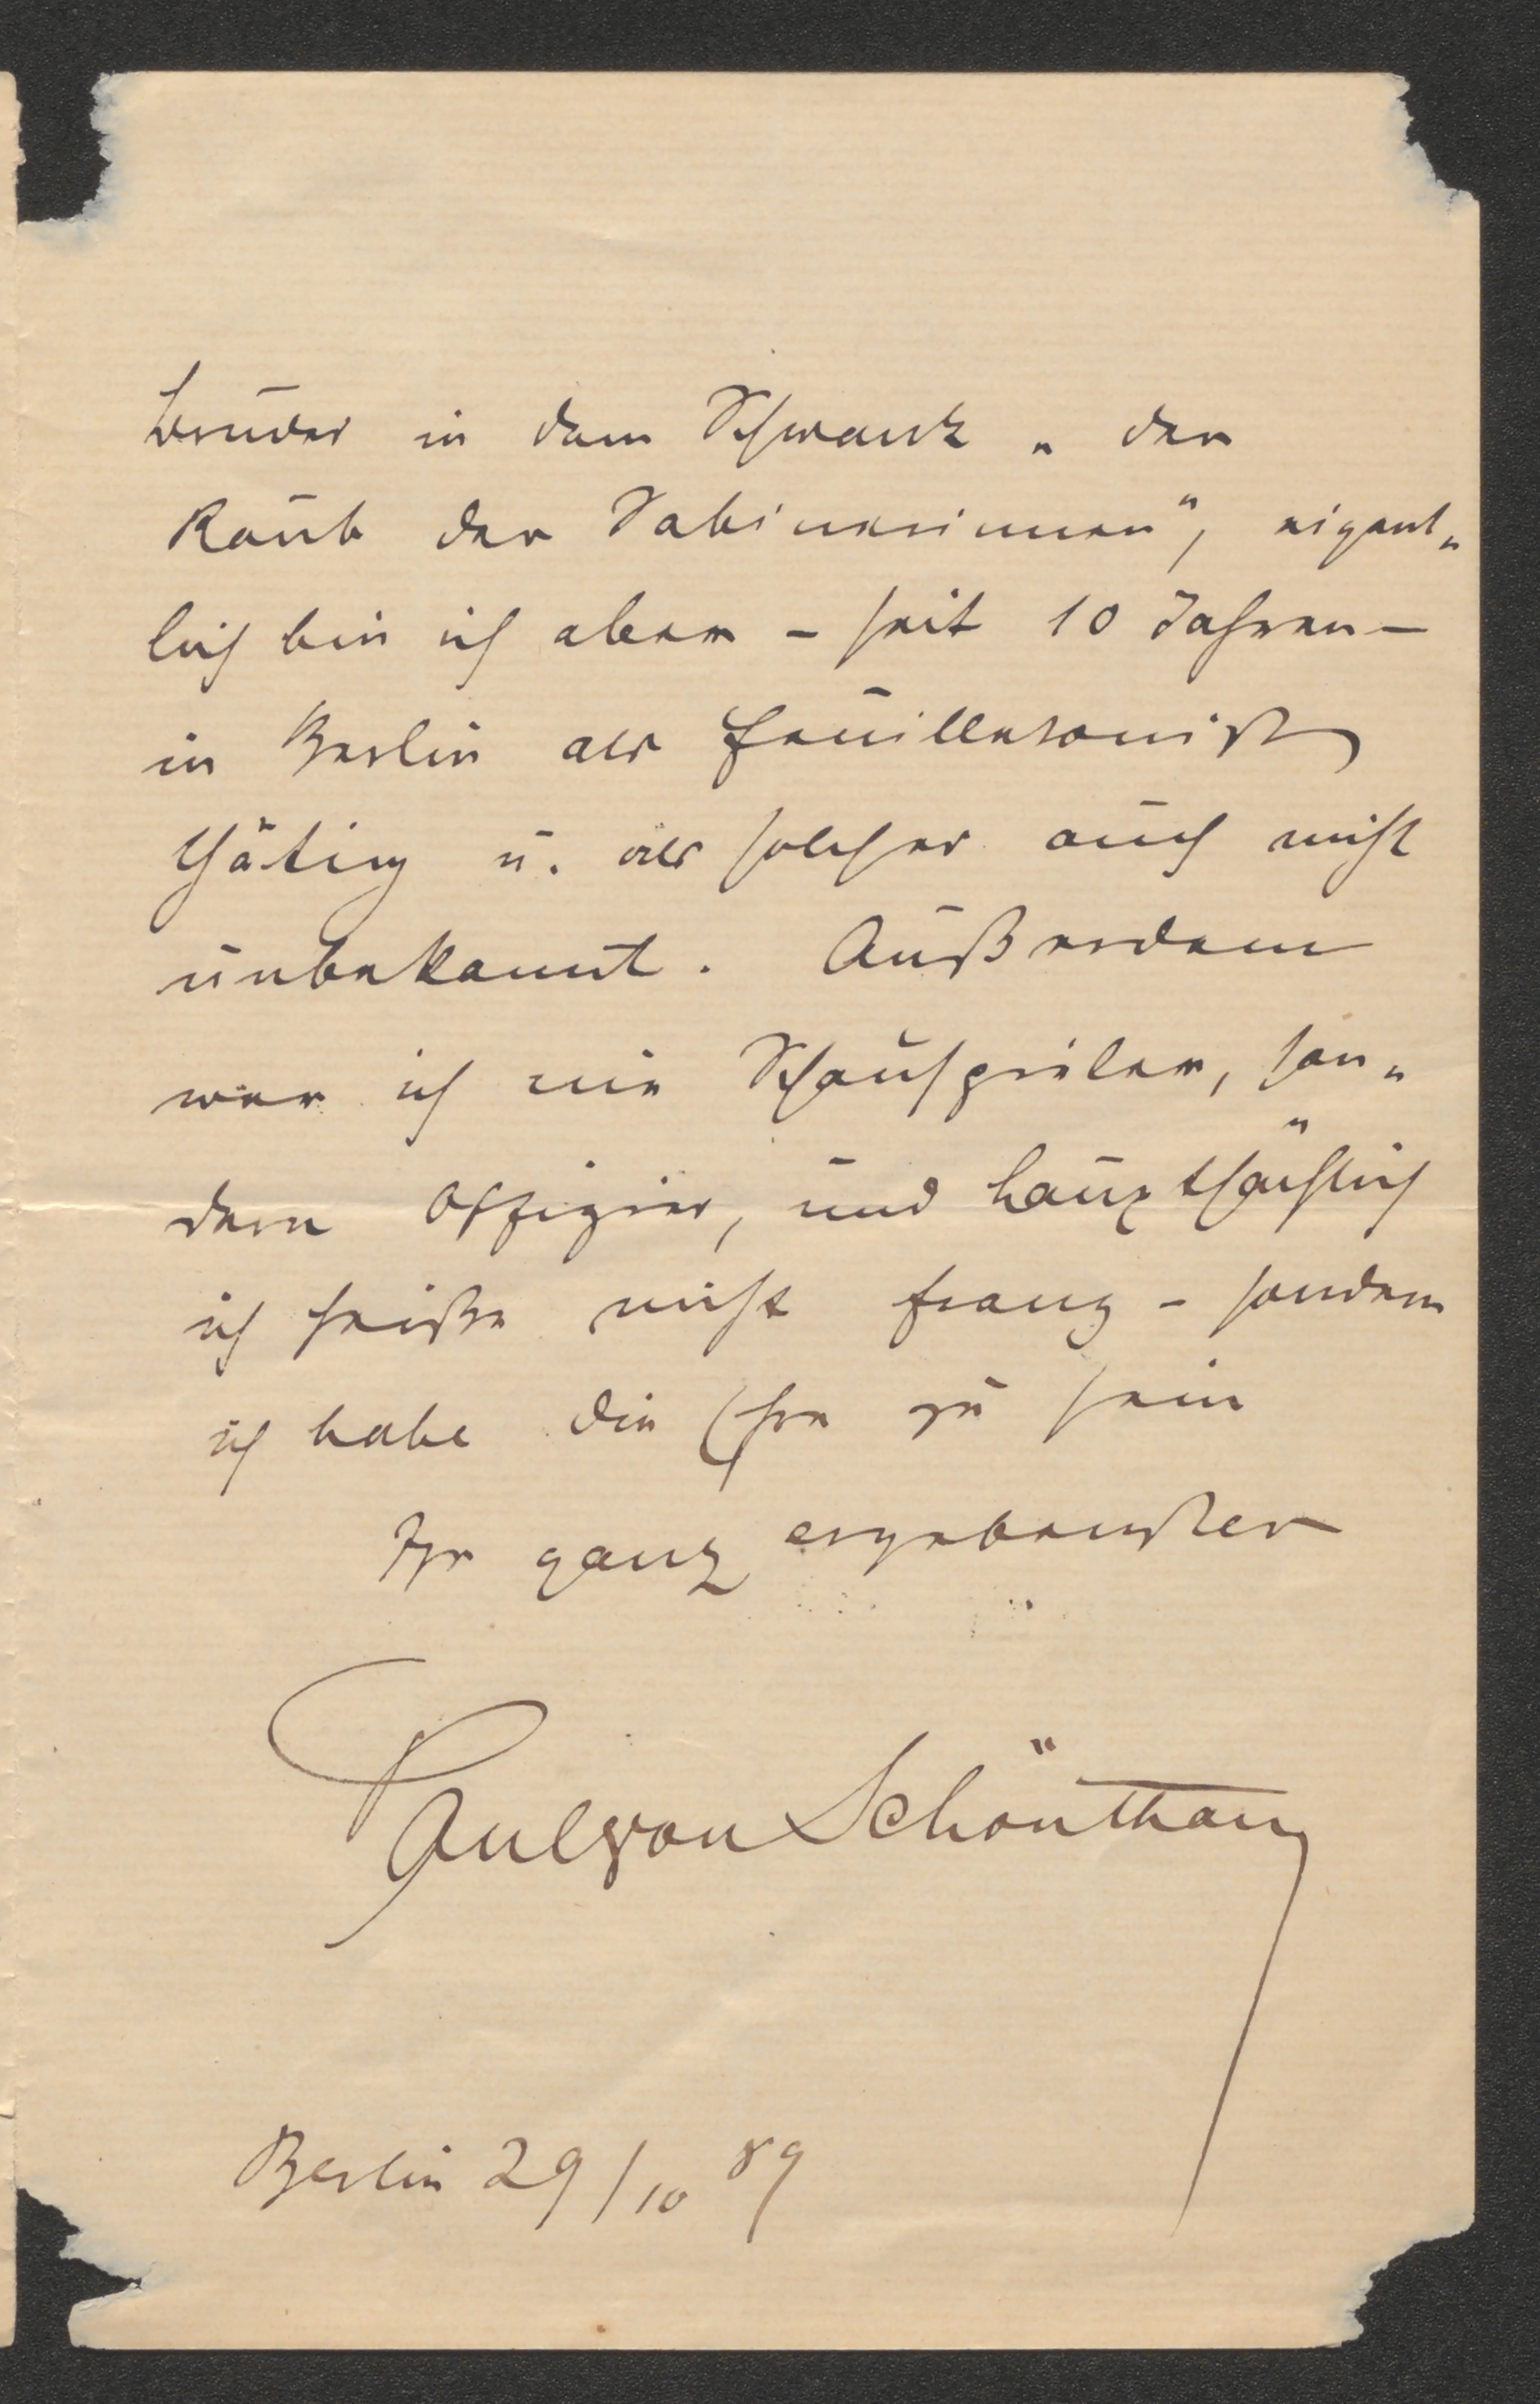 bruder in dem Schwank „der
Raub der Sabinerinnen", eigent„
lich bin ich aber – seit 10 Jahren –
in Berlin als Feuilletonist
thätig u. als solcher auch nicht
unbekannt. Außerdem
war ich nie Schauspieler, son„
dern Offizier, und hauptsächlich
ich heiße nicht Franz – sondern
ich habe die Ehre zu sein
Ihr ganz ergebenster
Paul von Schönthan
Berlin 29/10 89